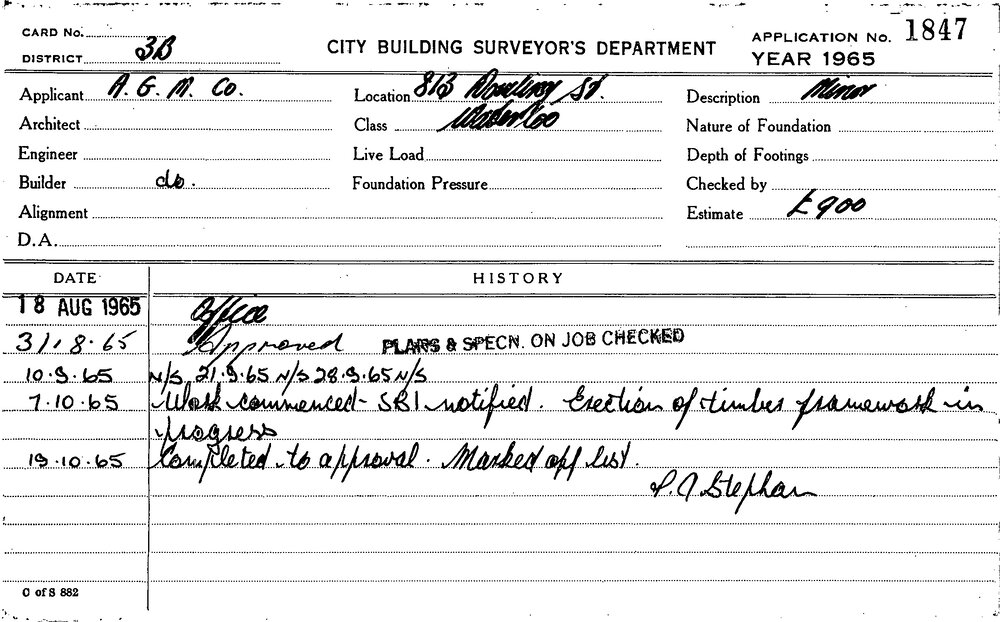 CARD No.
DISTRICT 3B
CITY BUILDING SURVEYOR'S DEPARTMENT
APPLICATION No. 1847
YEAR 1965
Applicant A. G. M. Co. Location 813 Dowling St. Description Minor
Architect Class Waterloo Nature of Foundation
Engineer Live Load Depth of Footings
Builder do. Foundation Pressure Checked by
Alignment Estimate £900
D.A.
DATE HISTORY
18 AUG 1965 Office
31.8.65 Approved PLANS & SPECN. ON JOB CHECKED
10.9.65 N/S 21.9.65 N/S 28.9.65 N/S
7.10.65 Work commenced - SBI notified. Erection of timber framework in
progress
19.10.65 Completed to approval. Marked off list.
C of S 882